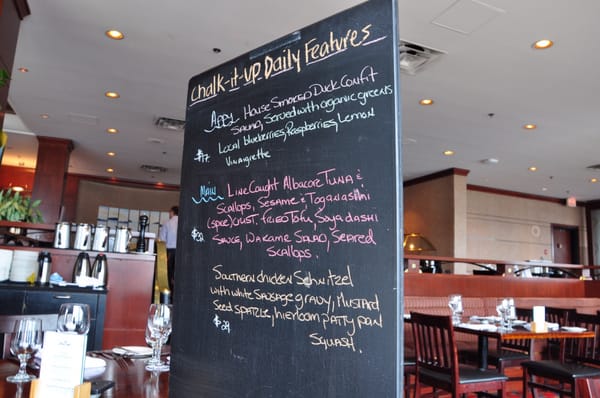 Chalk-it-up Daily Features
Appy House Smoked Duck Confit
Salad, Served with organic greens
Local blueberries, Raspberries, Lemon
$17 Vinaigrette
Main Line Caught Albacore Tuna &
Scallops, Sesame & Togarashi
(spice) crust, Fried Tofu, Soya dashi
Sauce, Wakame Salad, Seared
Scallops.
Southern chicken Schnitzel
with white Sausage gravy, Mustard
Seed spatzle, heirloom patty pan
$29 Squash.